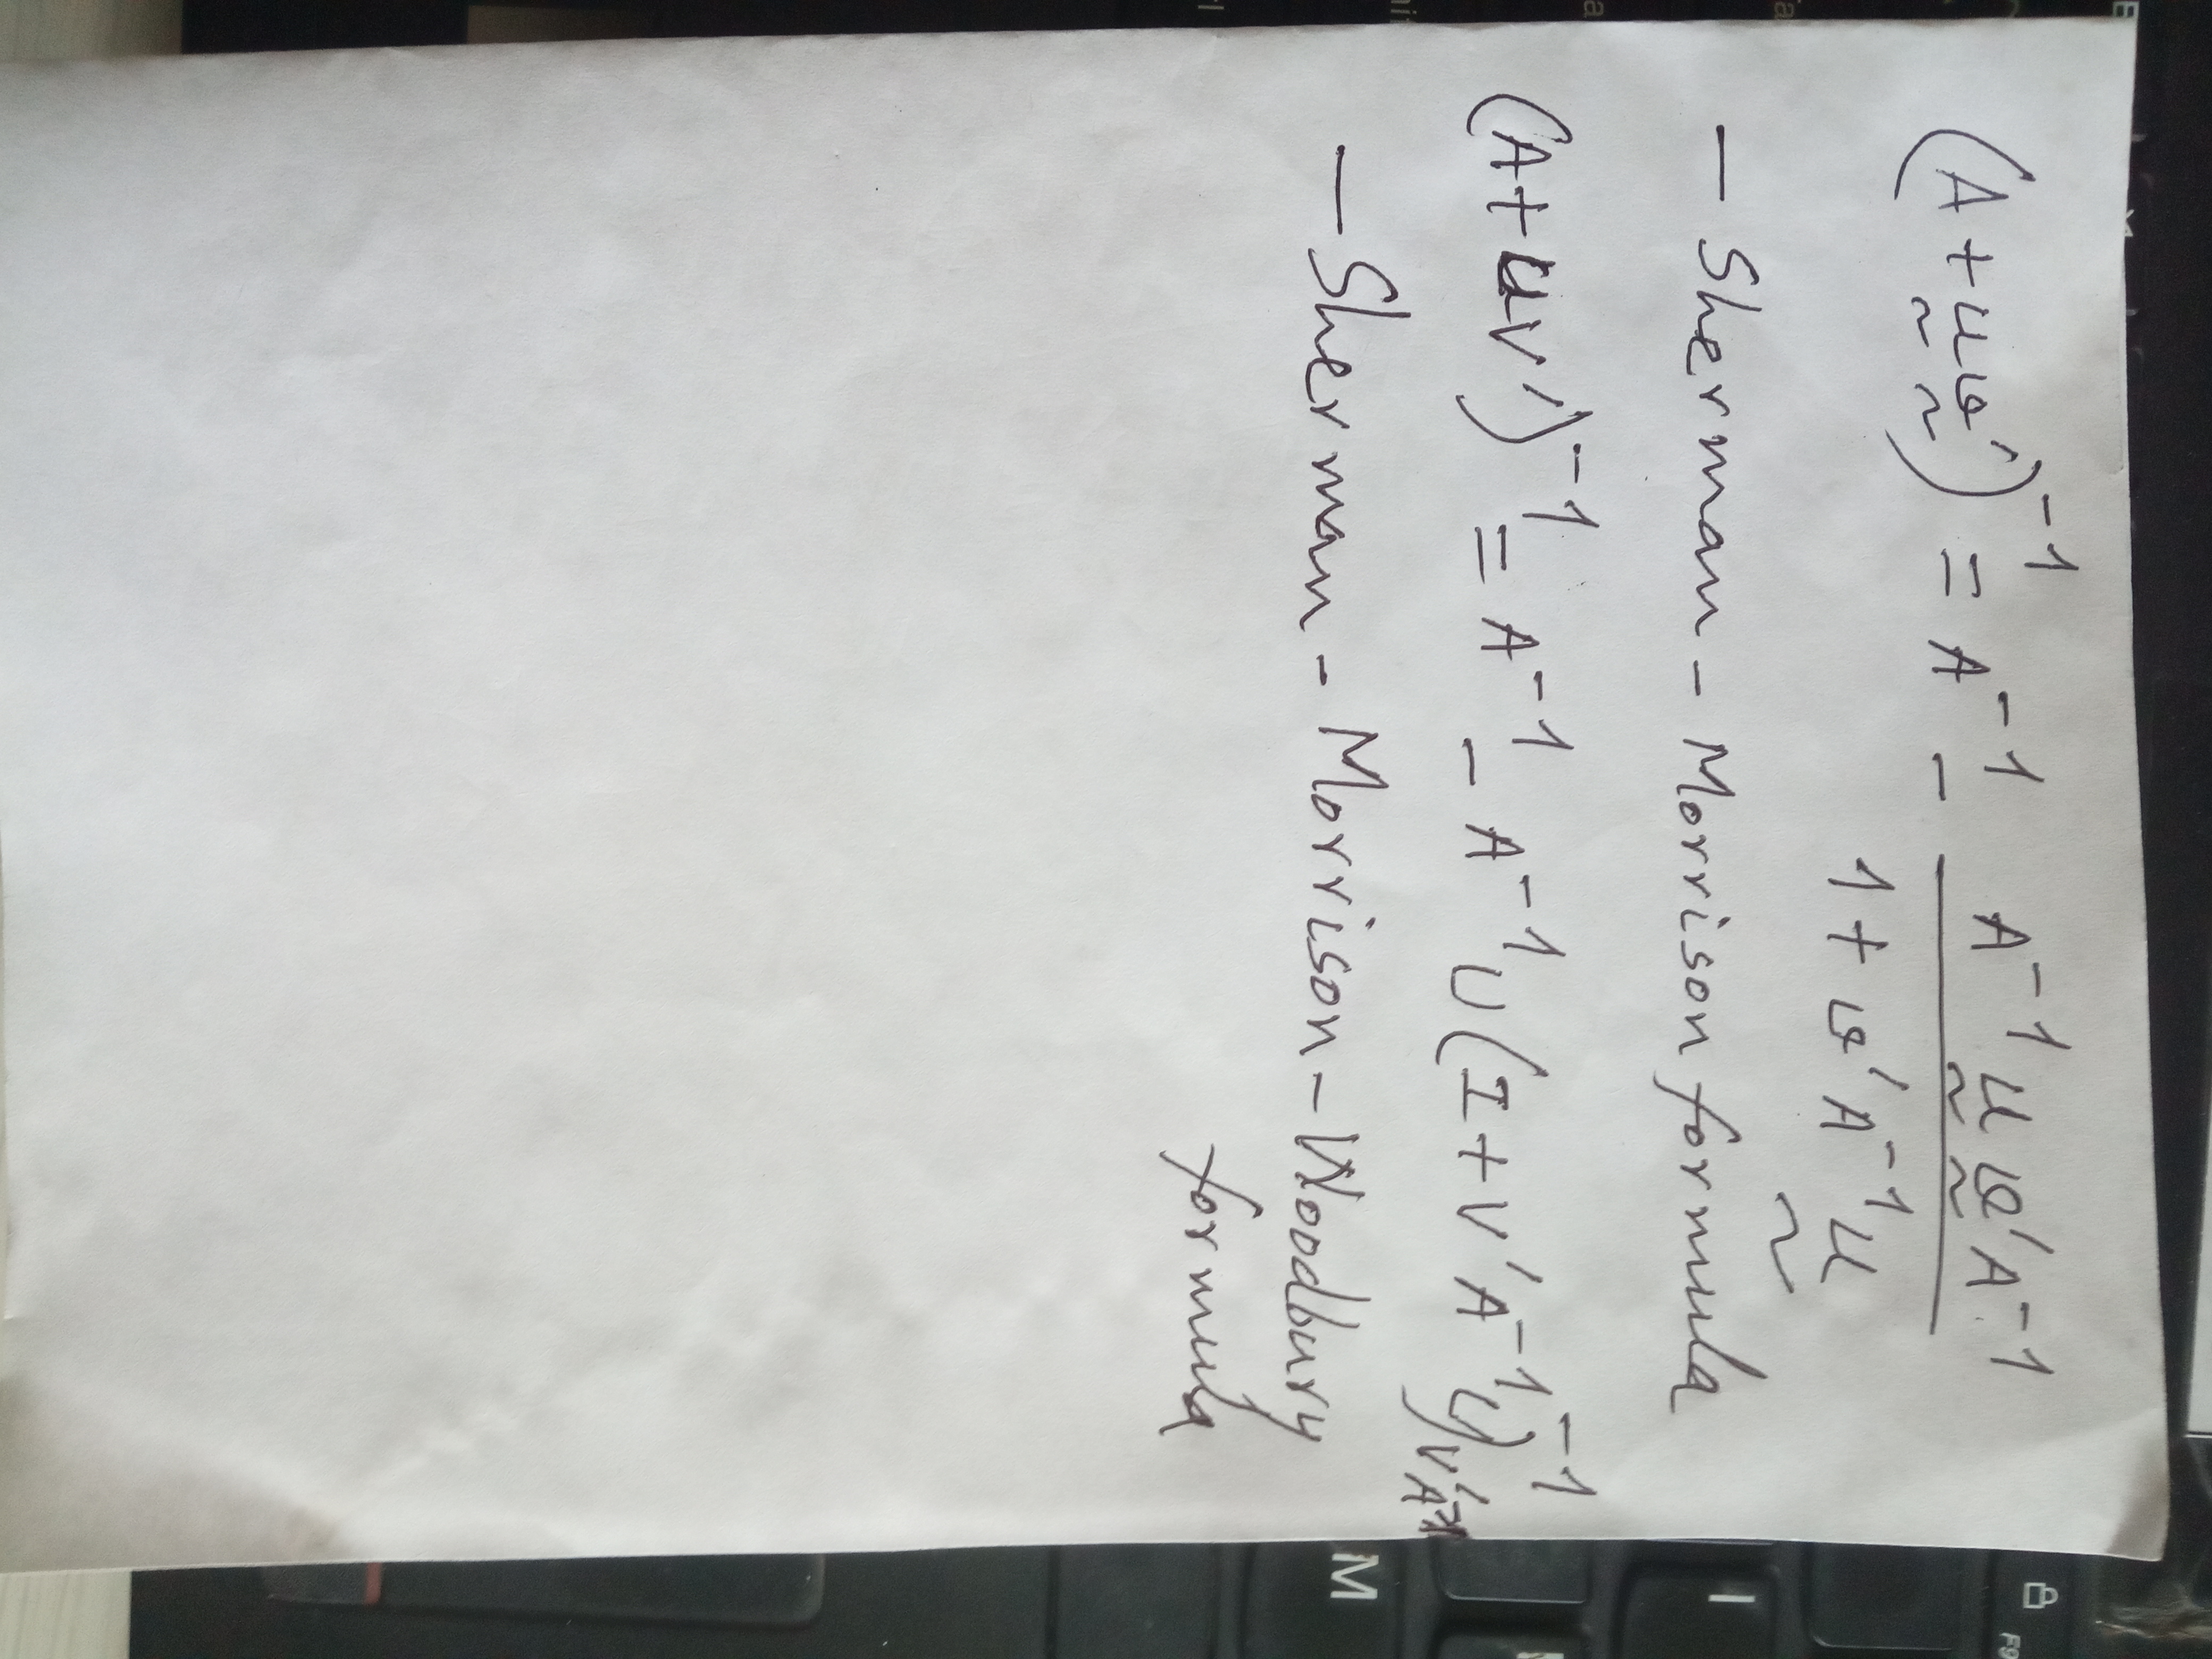 (A+uv')⁻¹ = A⁻¹ − A⁻¹uv'A⁻¹ / 1+v'A⁻¹u
— Sherman-Morrison formula
(A+UV')⁻¹ = A⁻¹ − A⁻¹U(I+V'A⁻¹U)⁻¹V'A⁻¹
— Sherman-Morrison-Woodbury
formula
M
I
F9